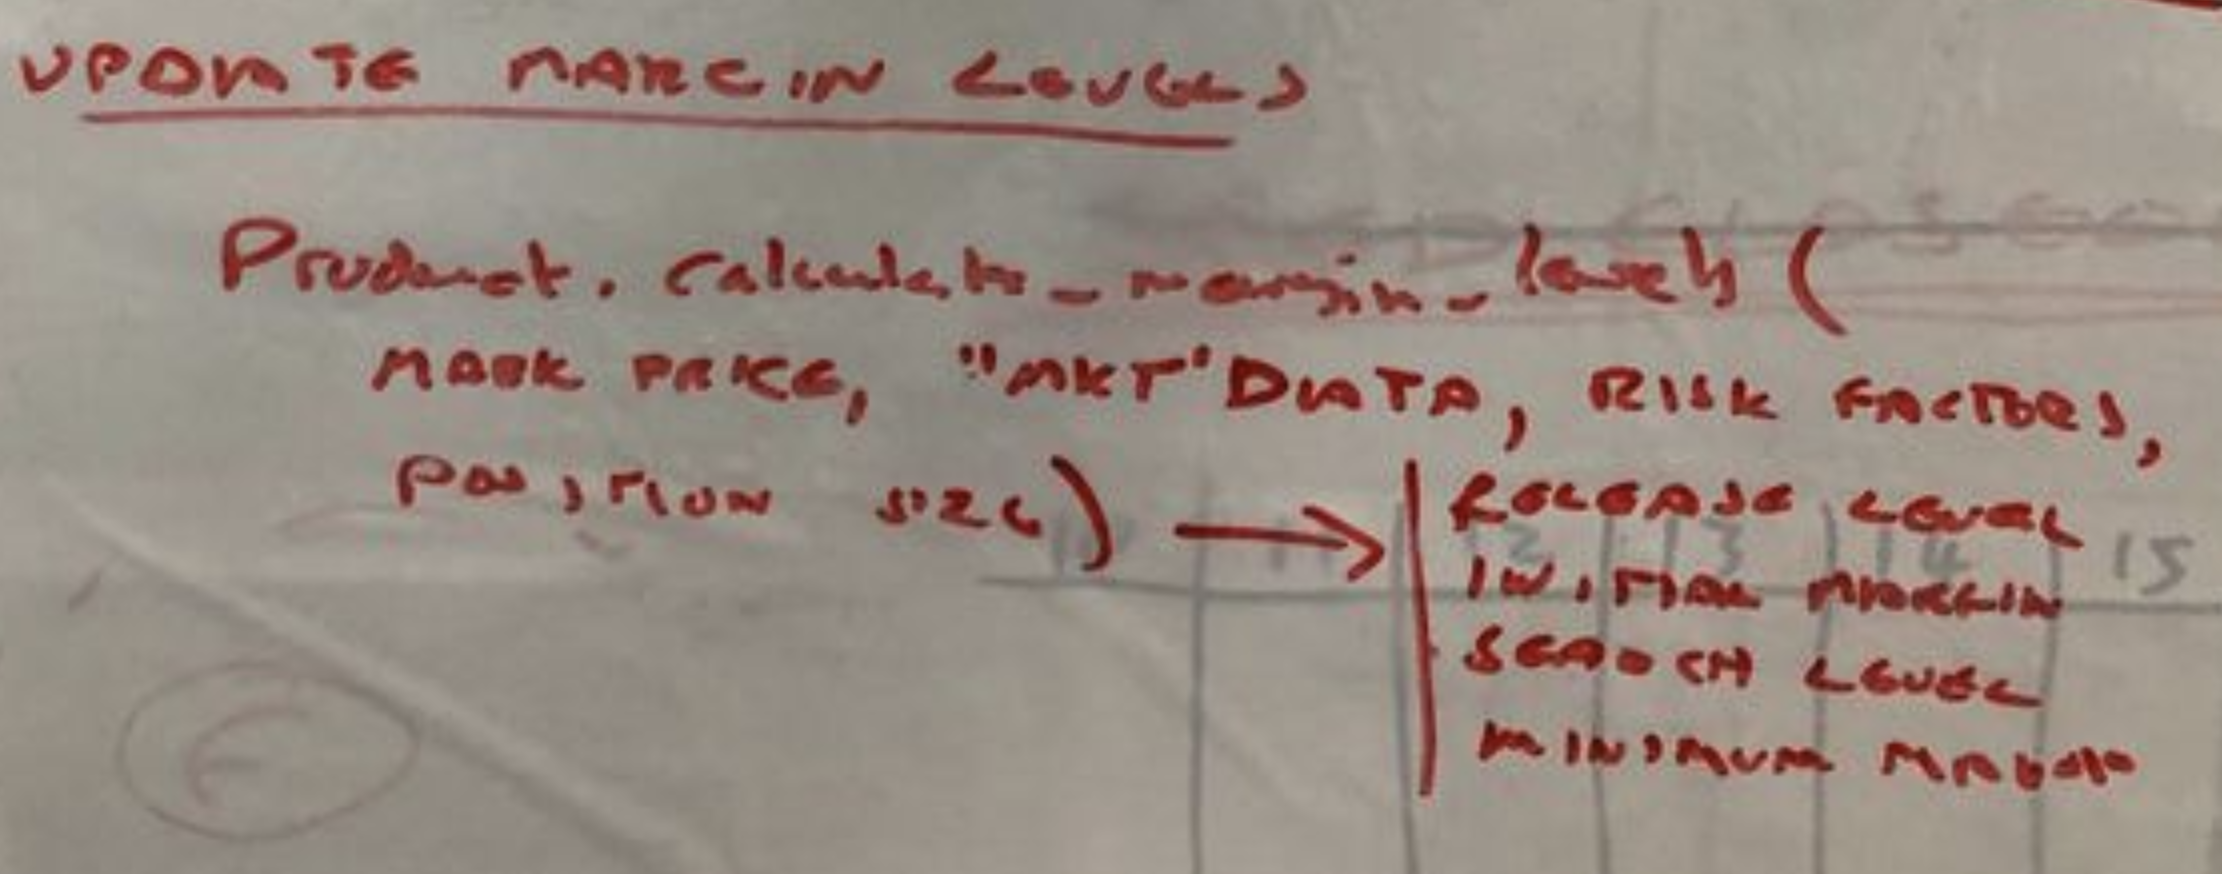 UPDATE MARGIN LEVELS
Product.calculate_margin_levels(
MARK PRICE, "MKT" DATA, RISK FACTORS,
POSITION SIZE) →
RELEASE LEVEL
INITIAL MARGIN
SEARCH LEVEL
MINIMUM MARGIN
13 14 15